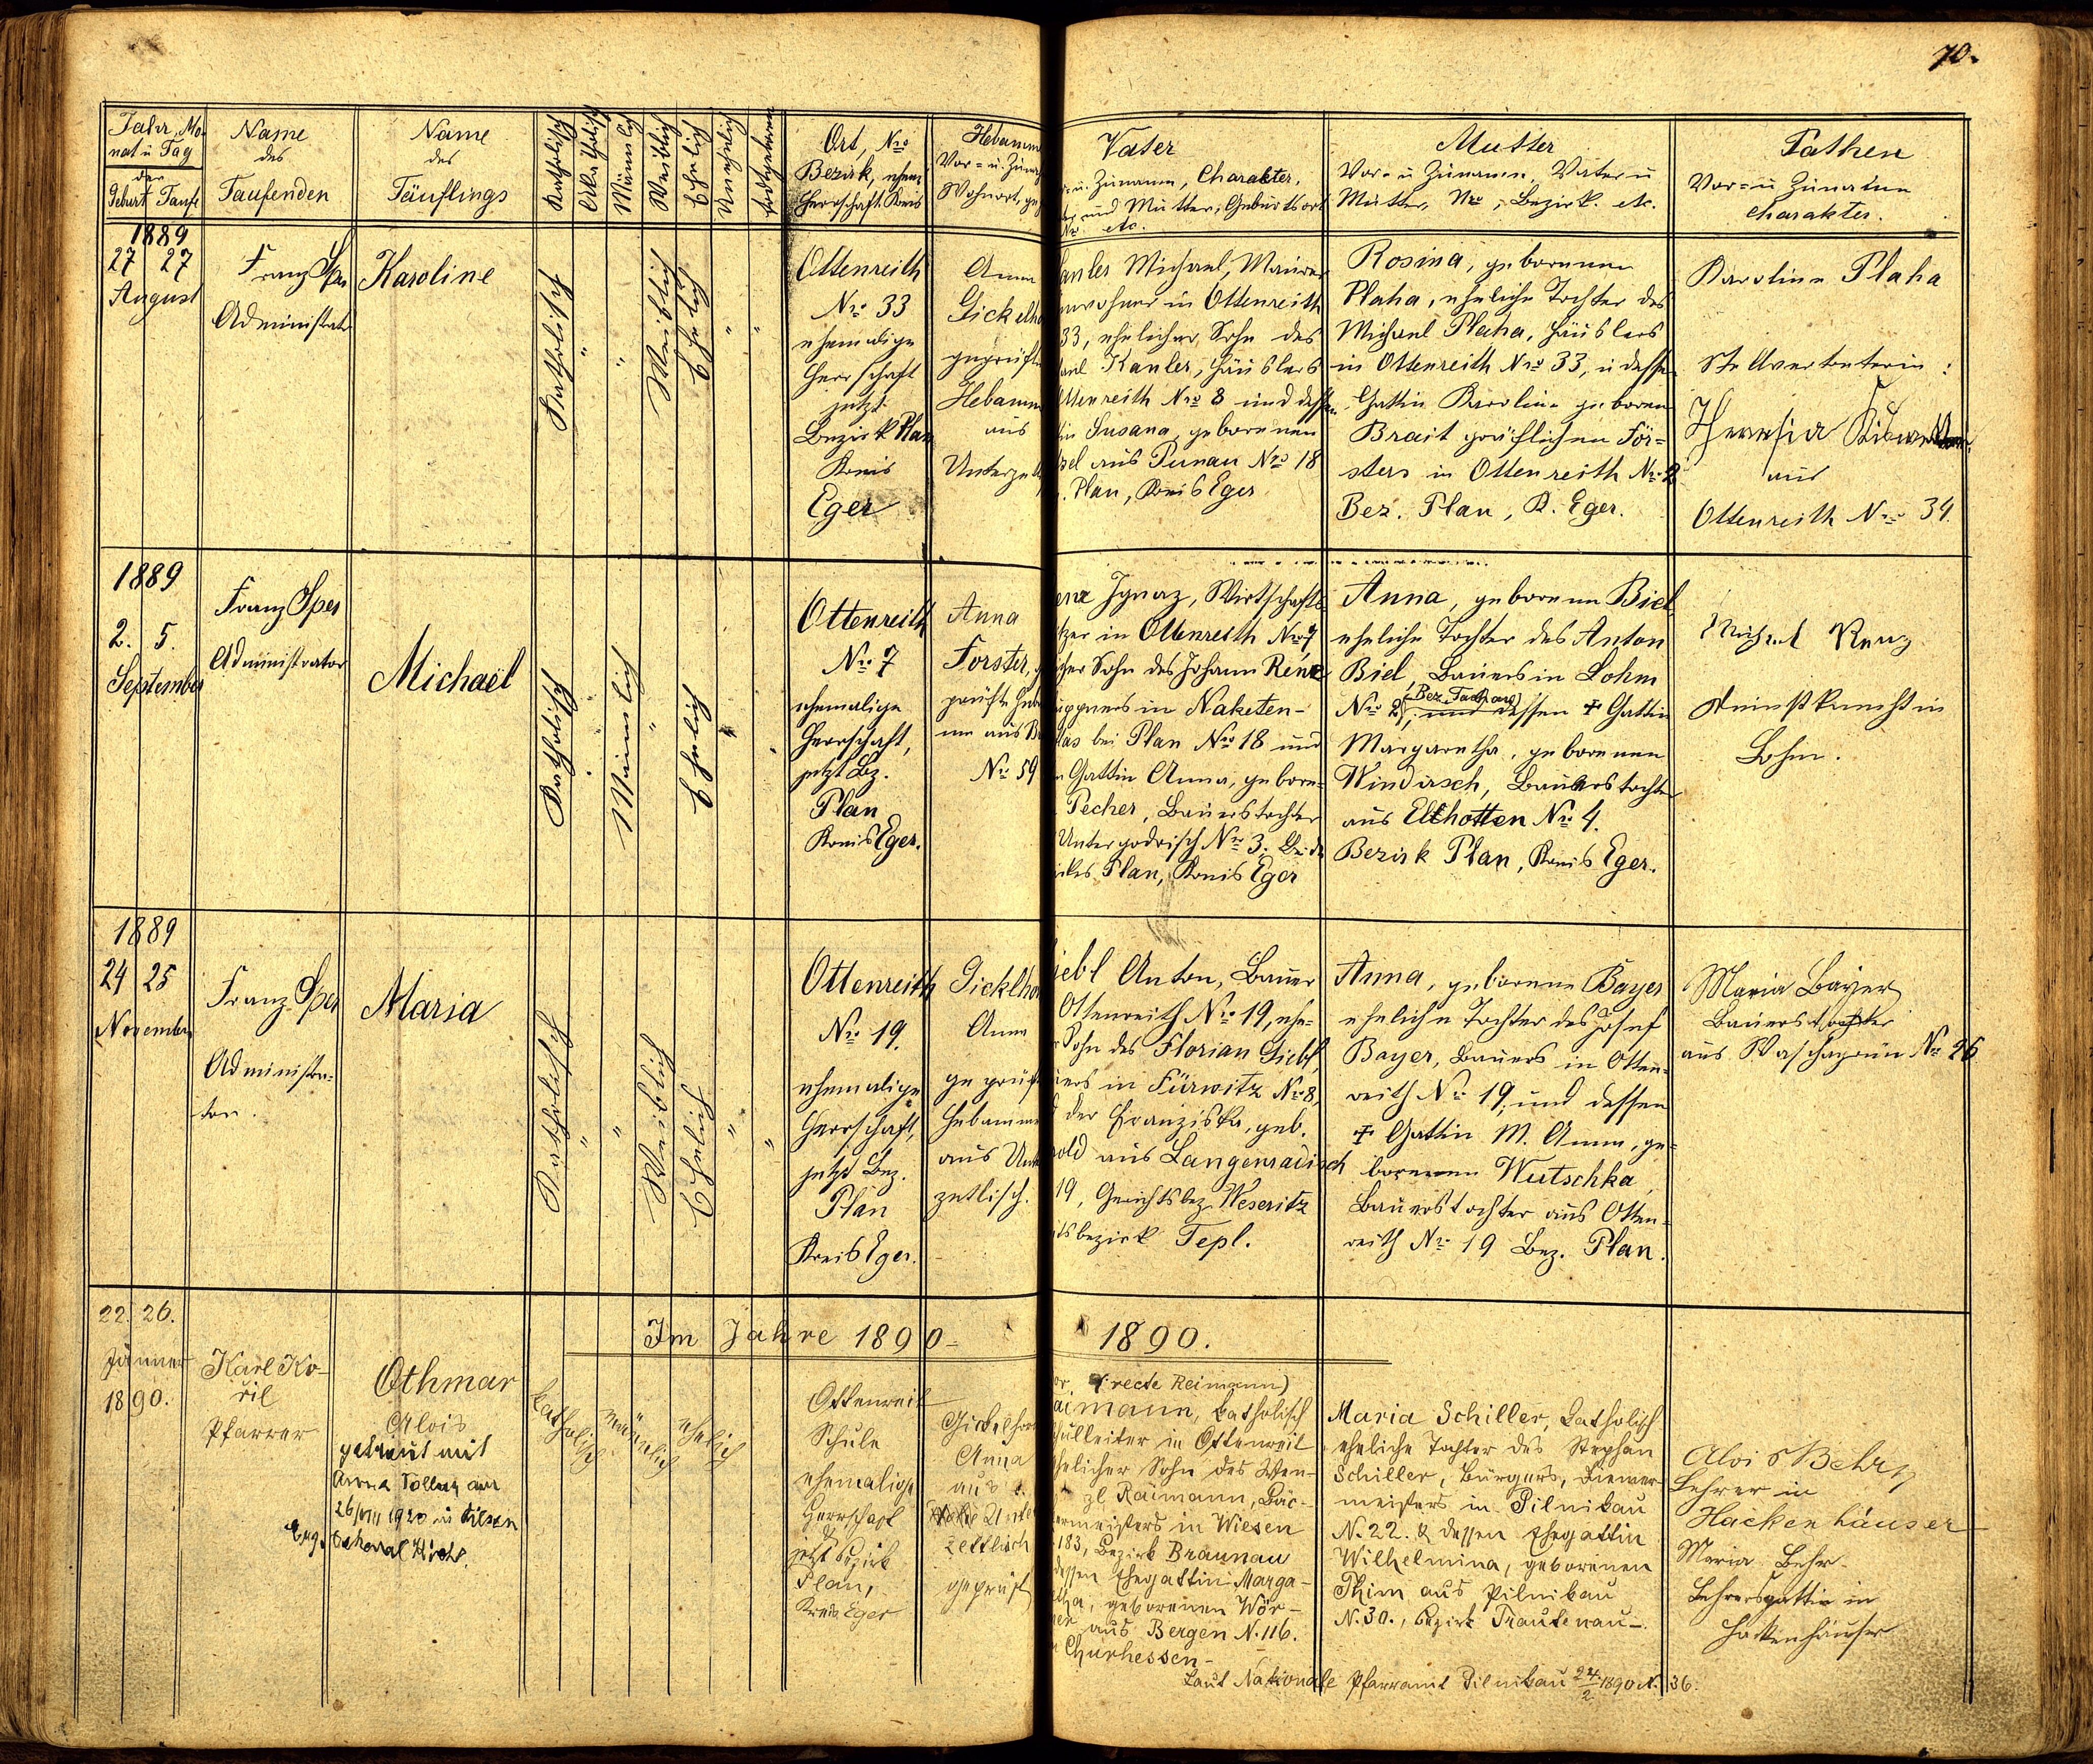 70.
Jahr, Mo-
nat u Tag
der
Geburt Taufe
Name
des
Taufenden
Name
des
Täuflings
Katholisch
Akatholisch
Männlich
Weiblich
Ehelich
Unehelich
Todtgeboren
Ort, Nro
Bezirk, ehem.
Herrschaft. Kreis
Hebamm
Vor- u. Zuna
Wohnort, ge
Vater
u. Zuname, Charakter,
und Mutter, Geburtsort
Nro etc.
Mutter
Vor- u Zuname, Vater u
Mutter, Nro, Bezirk. etc.
Pathen
Vor- u Zuname
Charakter.
1889
27 27
August
Franz Spes
Administrator
Karoline
Katholisch
"
"
Weiblich
Ehelich
"
"
Ottenreith
Nro 33
ehemalige
Herrschaft
jetzt
Bezirk Plan
Kreis
Eger
Anna
Gickelho
geprüfte
Hebamme
aus
Unterzettl
anler Michael, Maurer
inwohner in Ottenreith
33, ehelicher Sohn des
ael Kanler, Häuslers
Ottenreith Nro 8 und dessen
tin Susana, geborenen
aus Punau Nro 18
. Plan, Kreis Eger
Rosina, geborenen
Plaha, eheliche Tochter des
Michael Plaha, Häuslers
in Ottenreith Nro 33, u dessen
Gattin Karolina geboren
Brait gräflichen För-
sters in Ottenreith Nro 2
Bez. Plan, K. Eger.
Karolina Plaha
Stellvertreterin:
Theresia
aus
Ottenreith Nro 34.
1889
2. 5.
September
Franz Spes
Administrator
Michael
Katholisch
"
Männlich
"
Ehelich
"
"
Ottenreith
Nro 7
ehemalige
Herrschaft,
jetzt Bz.
Plan
Kreis Eger.
Anna
Forster, ge
prüfte Heba
me aus
No 59
enz Ignaz, Wirtschafts
tzer in Ottenreith Nro 7
cher Sohn des Johann Renz
üppners in Naketen-
las bei Plan Nro 18 und
n Gattin Anna, gebore-
Pecher, Bauerstochter
Untergodrisch Nro 3. Beide
ikes Plan, Kreis Eger
Anna, geborenen Biel
eheliche Tochter des Anton
Biel, Bauers in Lohm
(Bez. Tachau)
Nro 2, und dessen † Gattin
Margaretha, geborenen
Windirsch, Bauerstochter
aus Elhotten Nro 4.
Bezirk Plan, Kreis Eger.
Michael Renz
Dienstknecht in
Lohm.
1889
24 25
November
Franz Spes
Administra-
tor.
Maria
Katholisch
"
"
Weiblich
Ehelich
"
"
Ottenreith
Nro 19.
ehemalige
Herrschaft,
jetzt Bez.
Plan
Kreis Eger.
Gicklhor
Anna
geprüfte
Hebamme
aus Unter
zetlisch.
iebl Anton, Bauer
Ottenreith Nro 19, ehe-
r Sohn des Florian Liebl,
uers in Fürwitz No 8,
d der Franziska, geb.
old aus Langenradisch
19, Gerichtsbez. Weseritz
tsbezirk Tepl.
Anna, geborene Bayer
eheliche Tochter des Josef
Bayer, Bauers in Otten-
reith No 19, und dessen
† Gattin M. Anna, ge-
borenen Wutschka,
Bauerstochter aus Otten-
reith No 19 Bez. Plan.
Maria Bayer
Bauerstochter
aus Waschagrün No 26
Im Jahre 1890-
1890.
22. 26.
Jänner
1890.
Karl Ko-
ril
Pfarrer
Othmar
Alois
getraut mit
Anna am
26/VIII 1920 in Pilsen
katholisch
männlich
ehelich
Ottenreit
Schule
ehemalige
Herrschaft
jetzt Bezirk
Plan,
Kreis Eger
Gickelhor
Anna
aus
Unter
zettlisch
geprüft
or. (recte Reimann)
aimann, katholisch
hulleiter in Ottenreit
ehelicher Sohn des Wen-
zl Raimann, Bäc-
ermeisters in Wiesen
183, Bezirk Braunau
dessen Ehegattin Marga-
etha, geborenen Wör-
ner aus Bergen N. 116.
Churhessen-
Maria Schiller, katholisch
eheliche Tochter des Stephan
Schiller, Bürgers, Riemer
meisters in Pilnikau
N. 22. & dessen Ehegattin
Wilhelmina, geborenen
Thim aus Pilnikau
N. 30., Bezirk Trautenau-.
Alois Behr
Lehrer in
Hackenhäuser
Maria Behr
Lehrersgattin in
Hackenhäuser
Laut Nationale Pfarramt Pilnikau 24/2 1890 N. 36.